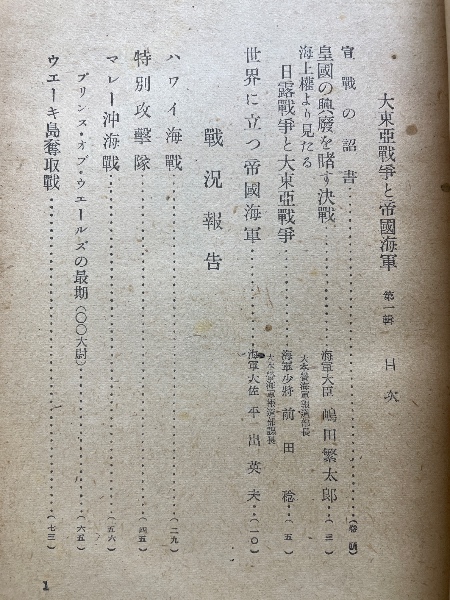 大東亞戰爭と帝國海軍 第一輯 目次
宣戰の詔書………(卷頭)
皇國の興廢を賭す決戰………海軍大臣 嶋田繁太郎…(三)
海上權より見たる
日露戰爭と大東亞戰爭………大本營海軍報道部長 海軍少將 前田稔…(五)
世界に立つ帝國海軍………大本營海軍報道部課長 海軍大佐 平出英夫…(一〇)
戰況報告
ハワイ海戰………(二九)
特別攻擊隊………(四五)
マレー沖海戰………(五六)
プリンス・オブ・ウエールズの最期(〇〇大尉)………(六五)
ウエーキ島奪取戰………(七三)
1